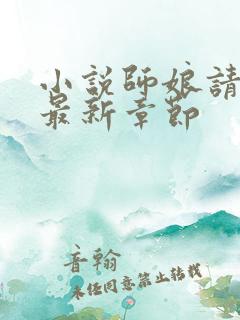 小說師娘請
最新章節
音翰
未經同意禁止轉載